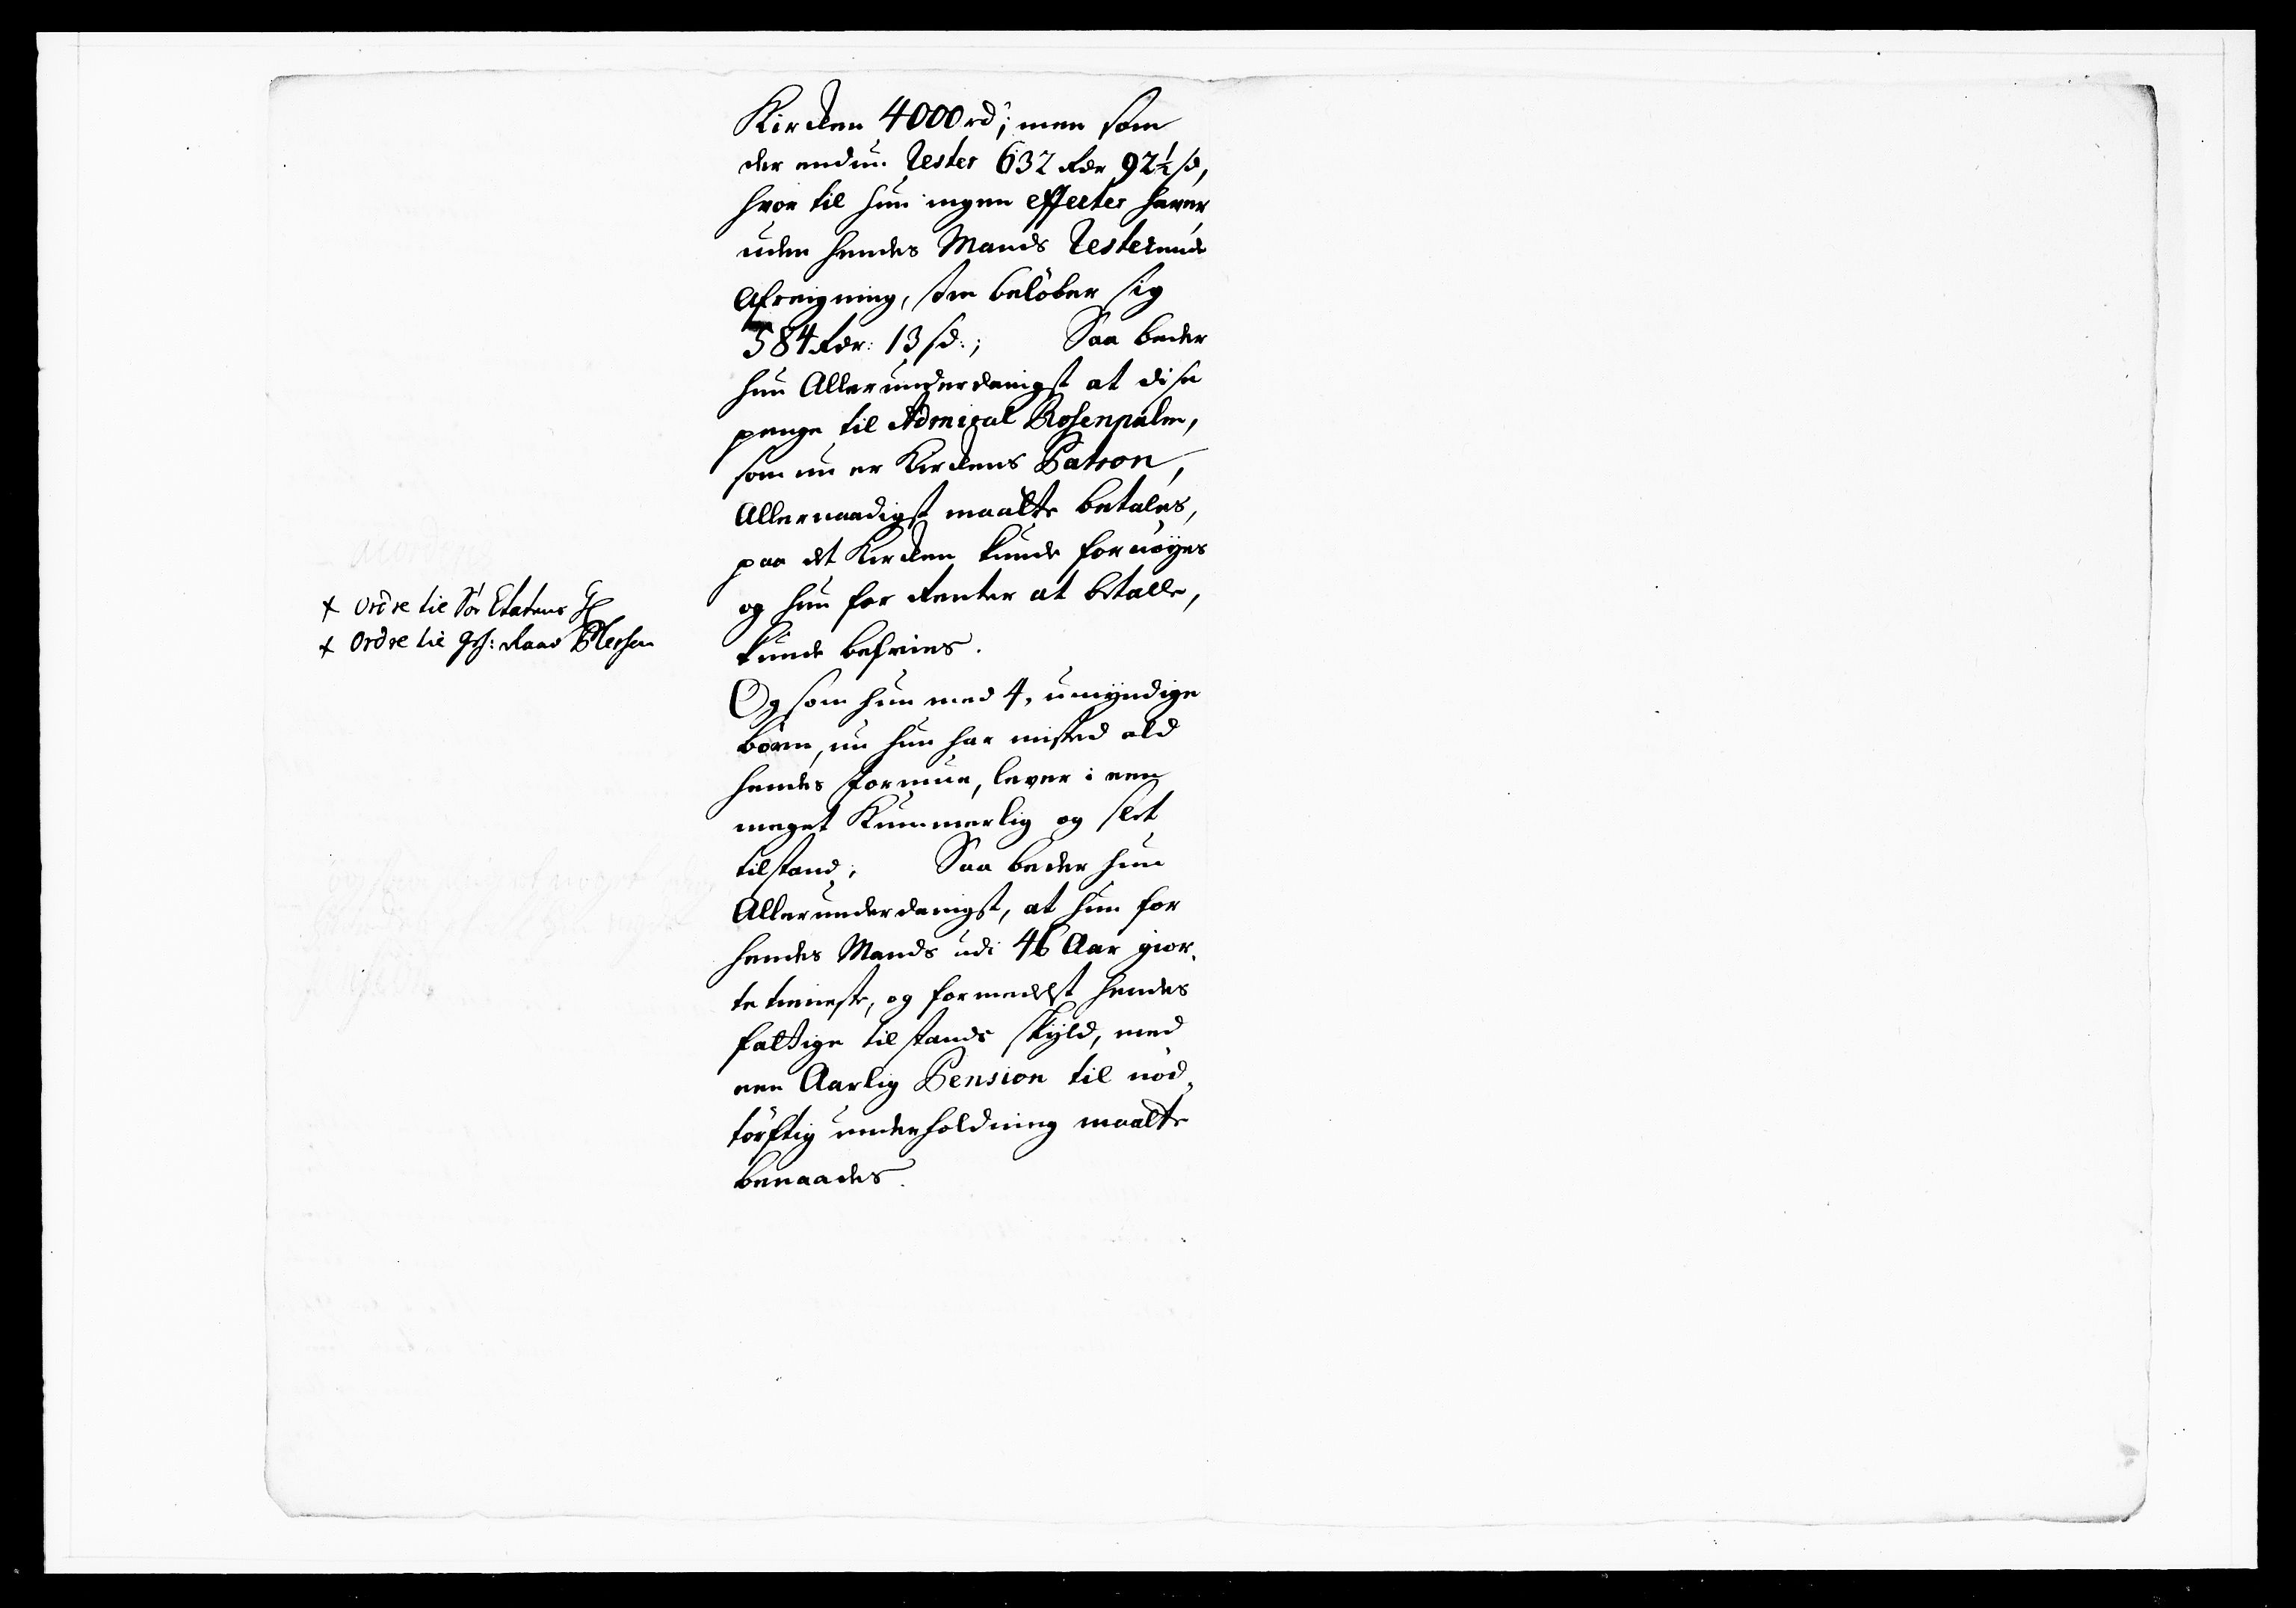 Kircken 4000 rd; men som
der endnu Rester 632 Rdr 92½ sd,
hvor til hun ingen effecter haver,
uden hendes Mands Resterende
Afreigning, som beløber sig
584 Rdr: 13 sd:; Saa beder
hun Allerunderdanigst at dise
penge til Admiral Rosenpalm,
som nu er Kirckens Patron,
Allernaadigst maatte betales,
paa det Kircken kunde fornøyes
og hun for Renter at betalle,
kunde befries.
Og som hun med 4, umyndige
børn, nu hun har misted ald
hendes formue, lever i een
meget Kummerlig og slet
tilstand; Saa beder hun
Allerunderdanigst, at hun for
hendes Mands udi 46 Aar gior-
te tieneste, og formedelst hendes
fattige tilstands skyld, med
een Aarlig Pension til nød-
tørftig underholdning maatte
benaades.
+ Ordre til Søe Etatens
+ Ordre til Geh: Raad Plessen